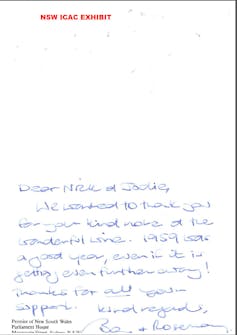 NSW ICAC EXHIBIT
Dear Nick & Jodie,
We wanted to thank you
for your kind note & the
wonderful wine. 1959 was
a good year, even if it is
getting even further away!
Thanks for all your
support.
Kind regards,
+ Rosemary
Premier of New South Wales
Parliament House